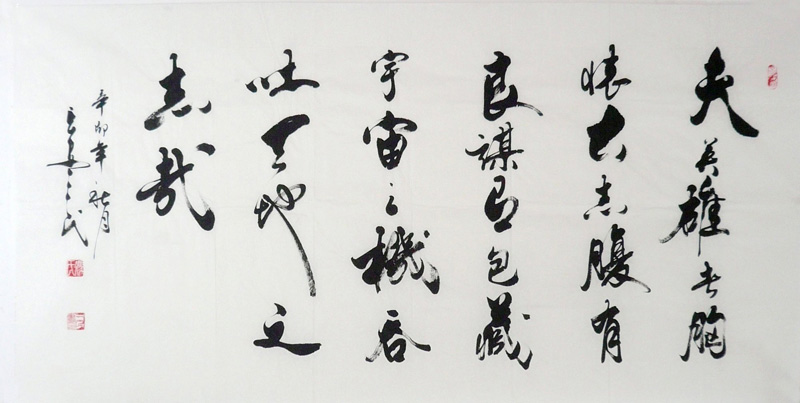 夫英雄者胸
懷大志腹有
良謀有包藏
宇宙之機吞
吐天地之
志哉
辛卯年秋月